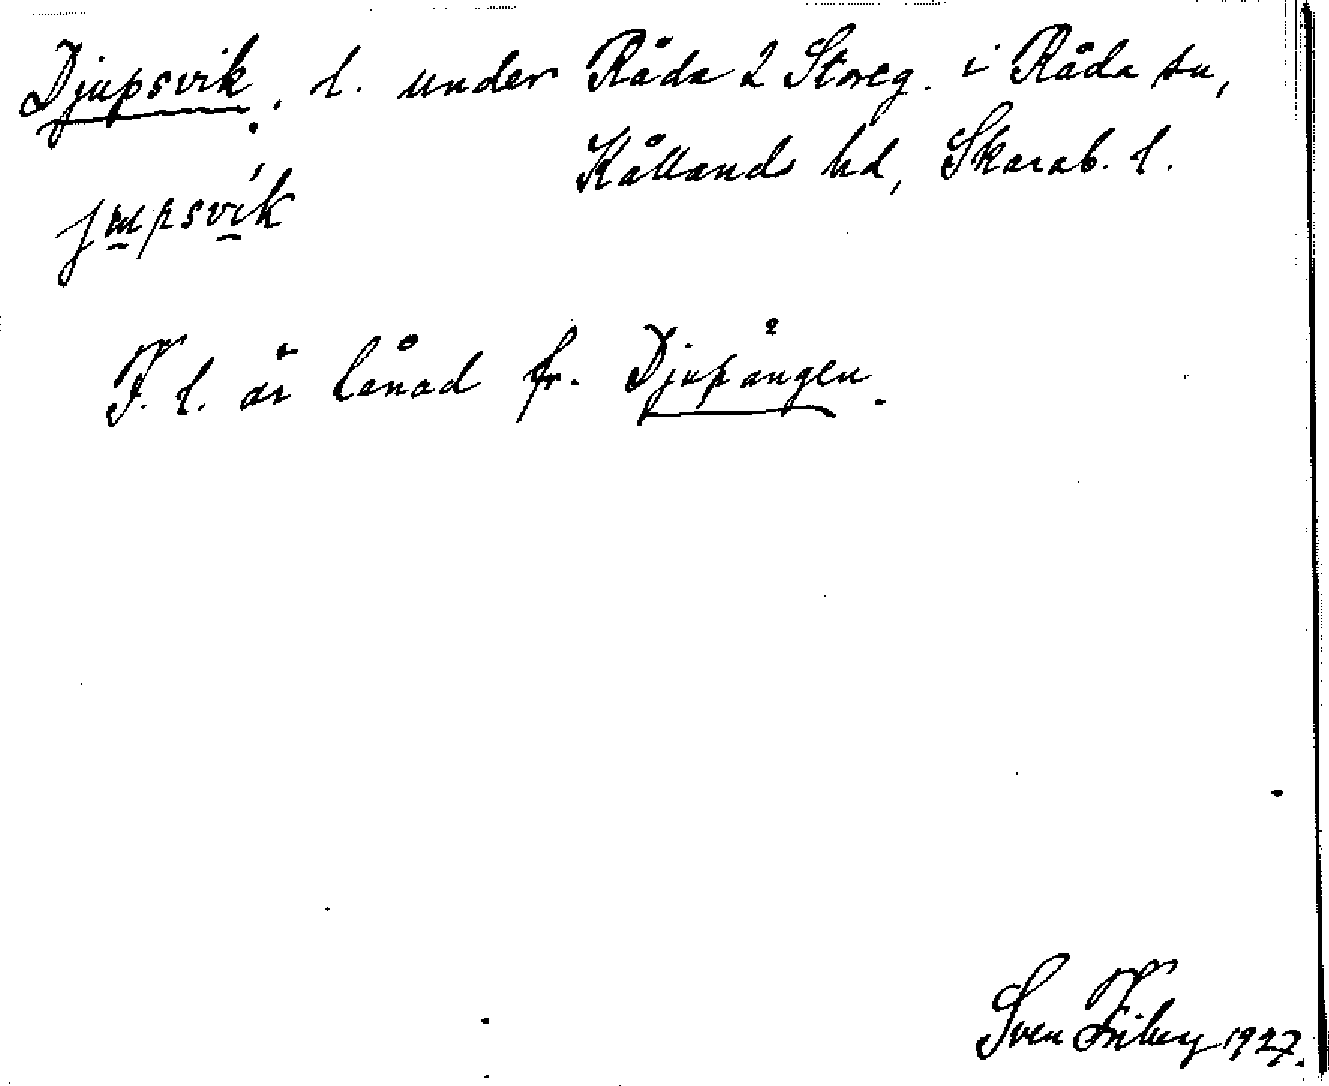 Djupsvik, l. under Råda 2 Storeg. i Råda sn,
Kålland hd, Skarab. l.
jupsvik
F. l. är lånad fr. Djupängen.
Sven Friberg 1927.